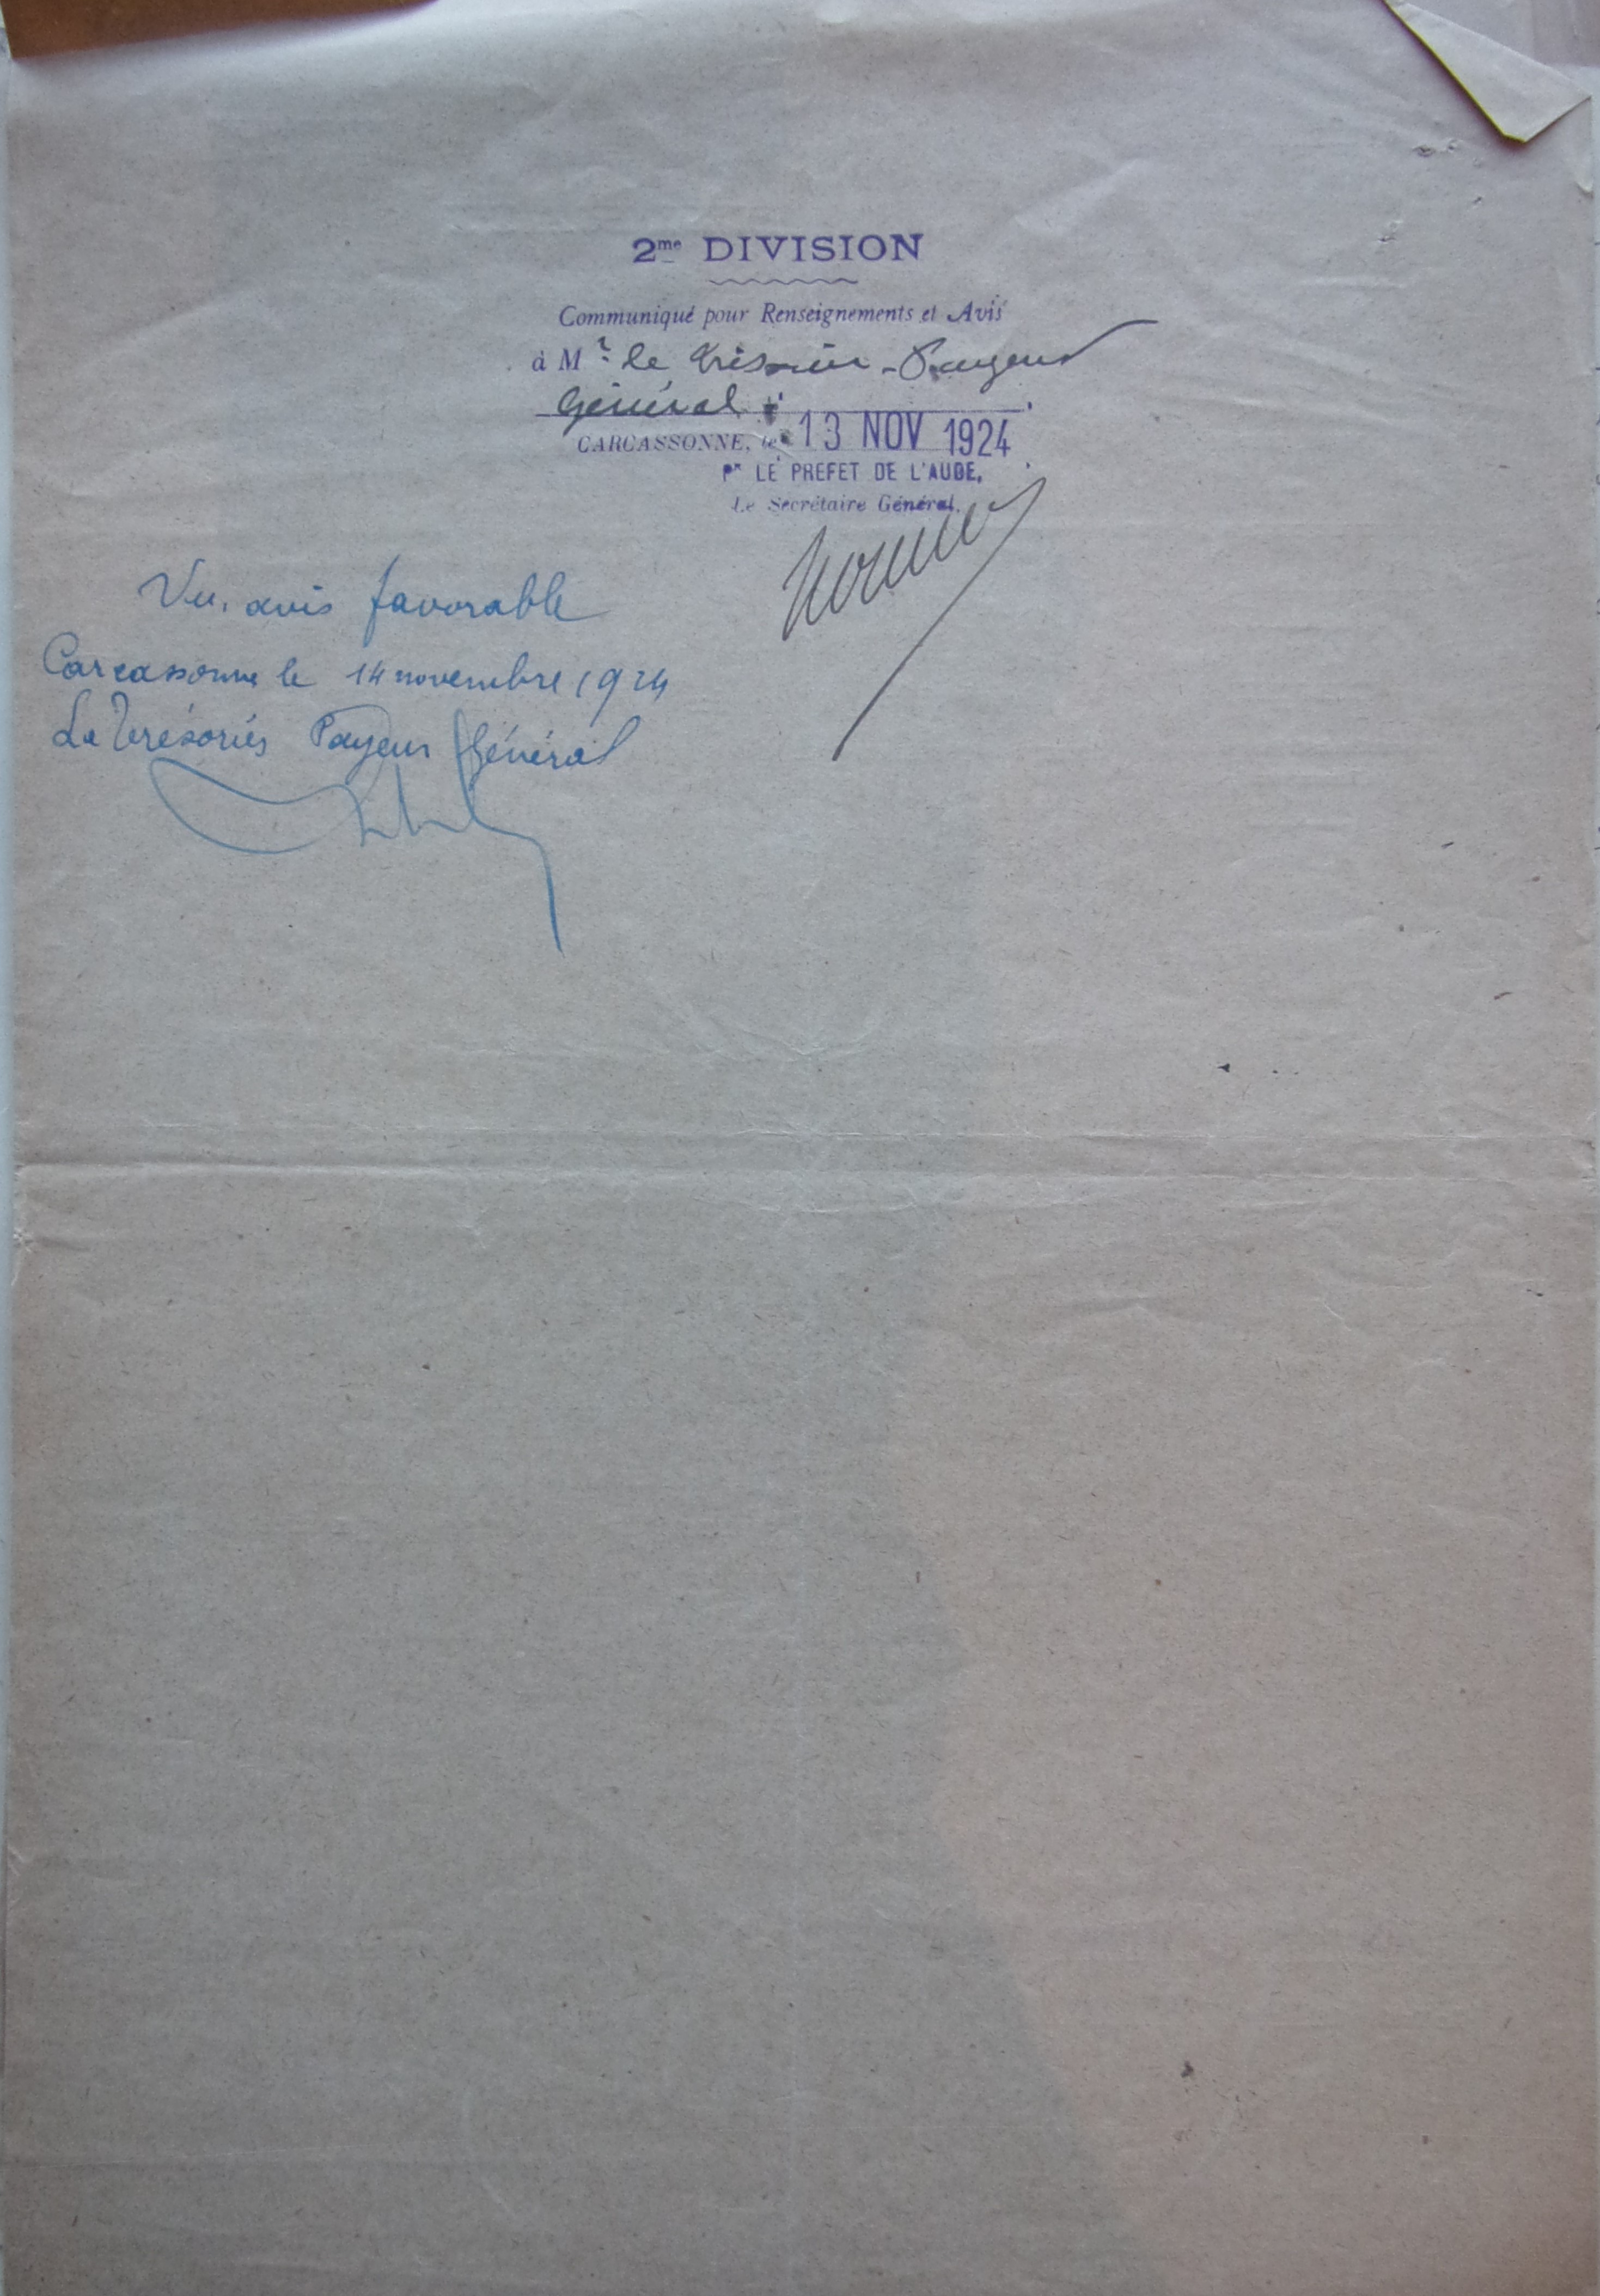 2me DIVISION
Communiqué pour Renseignements et Avis
à Mr. le Trésorier-Payeur
Général
CARCASSONNE, le 13 NOV 1924
Pr LE PREFET DE L'AUDE,
Le Secrétaire Général.
Vu, avis favorable
Carcassonne le 14 novembre 1924
Le Trésorier Payeur Général